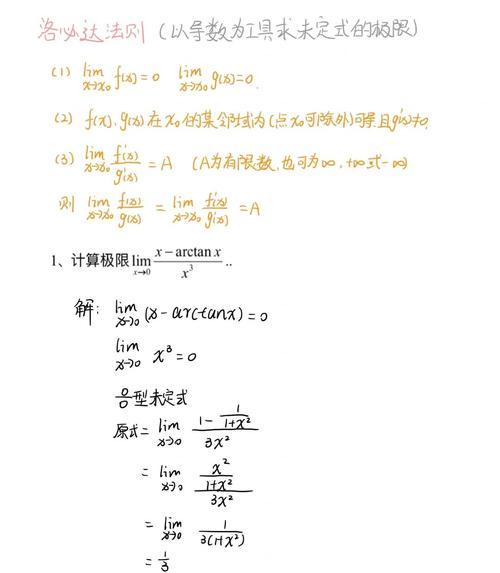 洛必达法则(以导数为工具求未定式的极限)
(1) lim x→x₀ f(x)=0 lim x→x₀ g(x)=0.
(2) f(x),g(x)在x₀的某邻域内(点x₀可除外)可导且g'(x)≠0.
(3) lim x→x₀ f'(x)/g'(x) = A (A为有限数,也可为∞,+∞或-∞)
则 lim x→x₀ f(x)/g(x) = lim x→x₀ f'(x)/g'(x) = A
1、计算极限 lim x→0 (x − arctan x)/x³ ..
解: lim x→0 (x - arctanx) = 0
lim x→0 x³ = 0
0/0型未定式
原式 = lim x→0 (1 - 1/(1+x²))/(3x²)
= lim x→0 (x²/(1+x²))/(3x²)
= lim x→0 1/(3(1+x²))
= 1/3